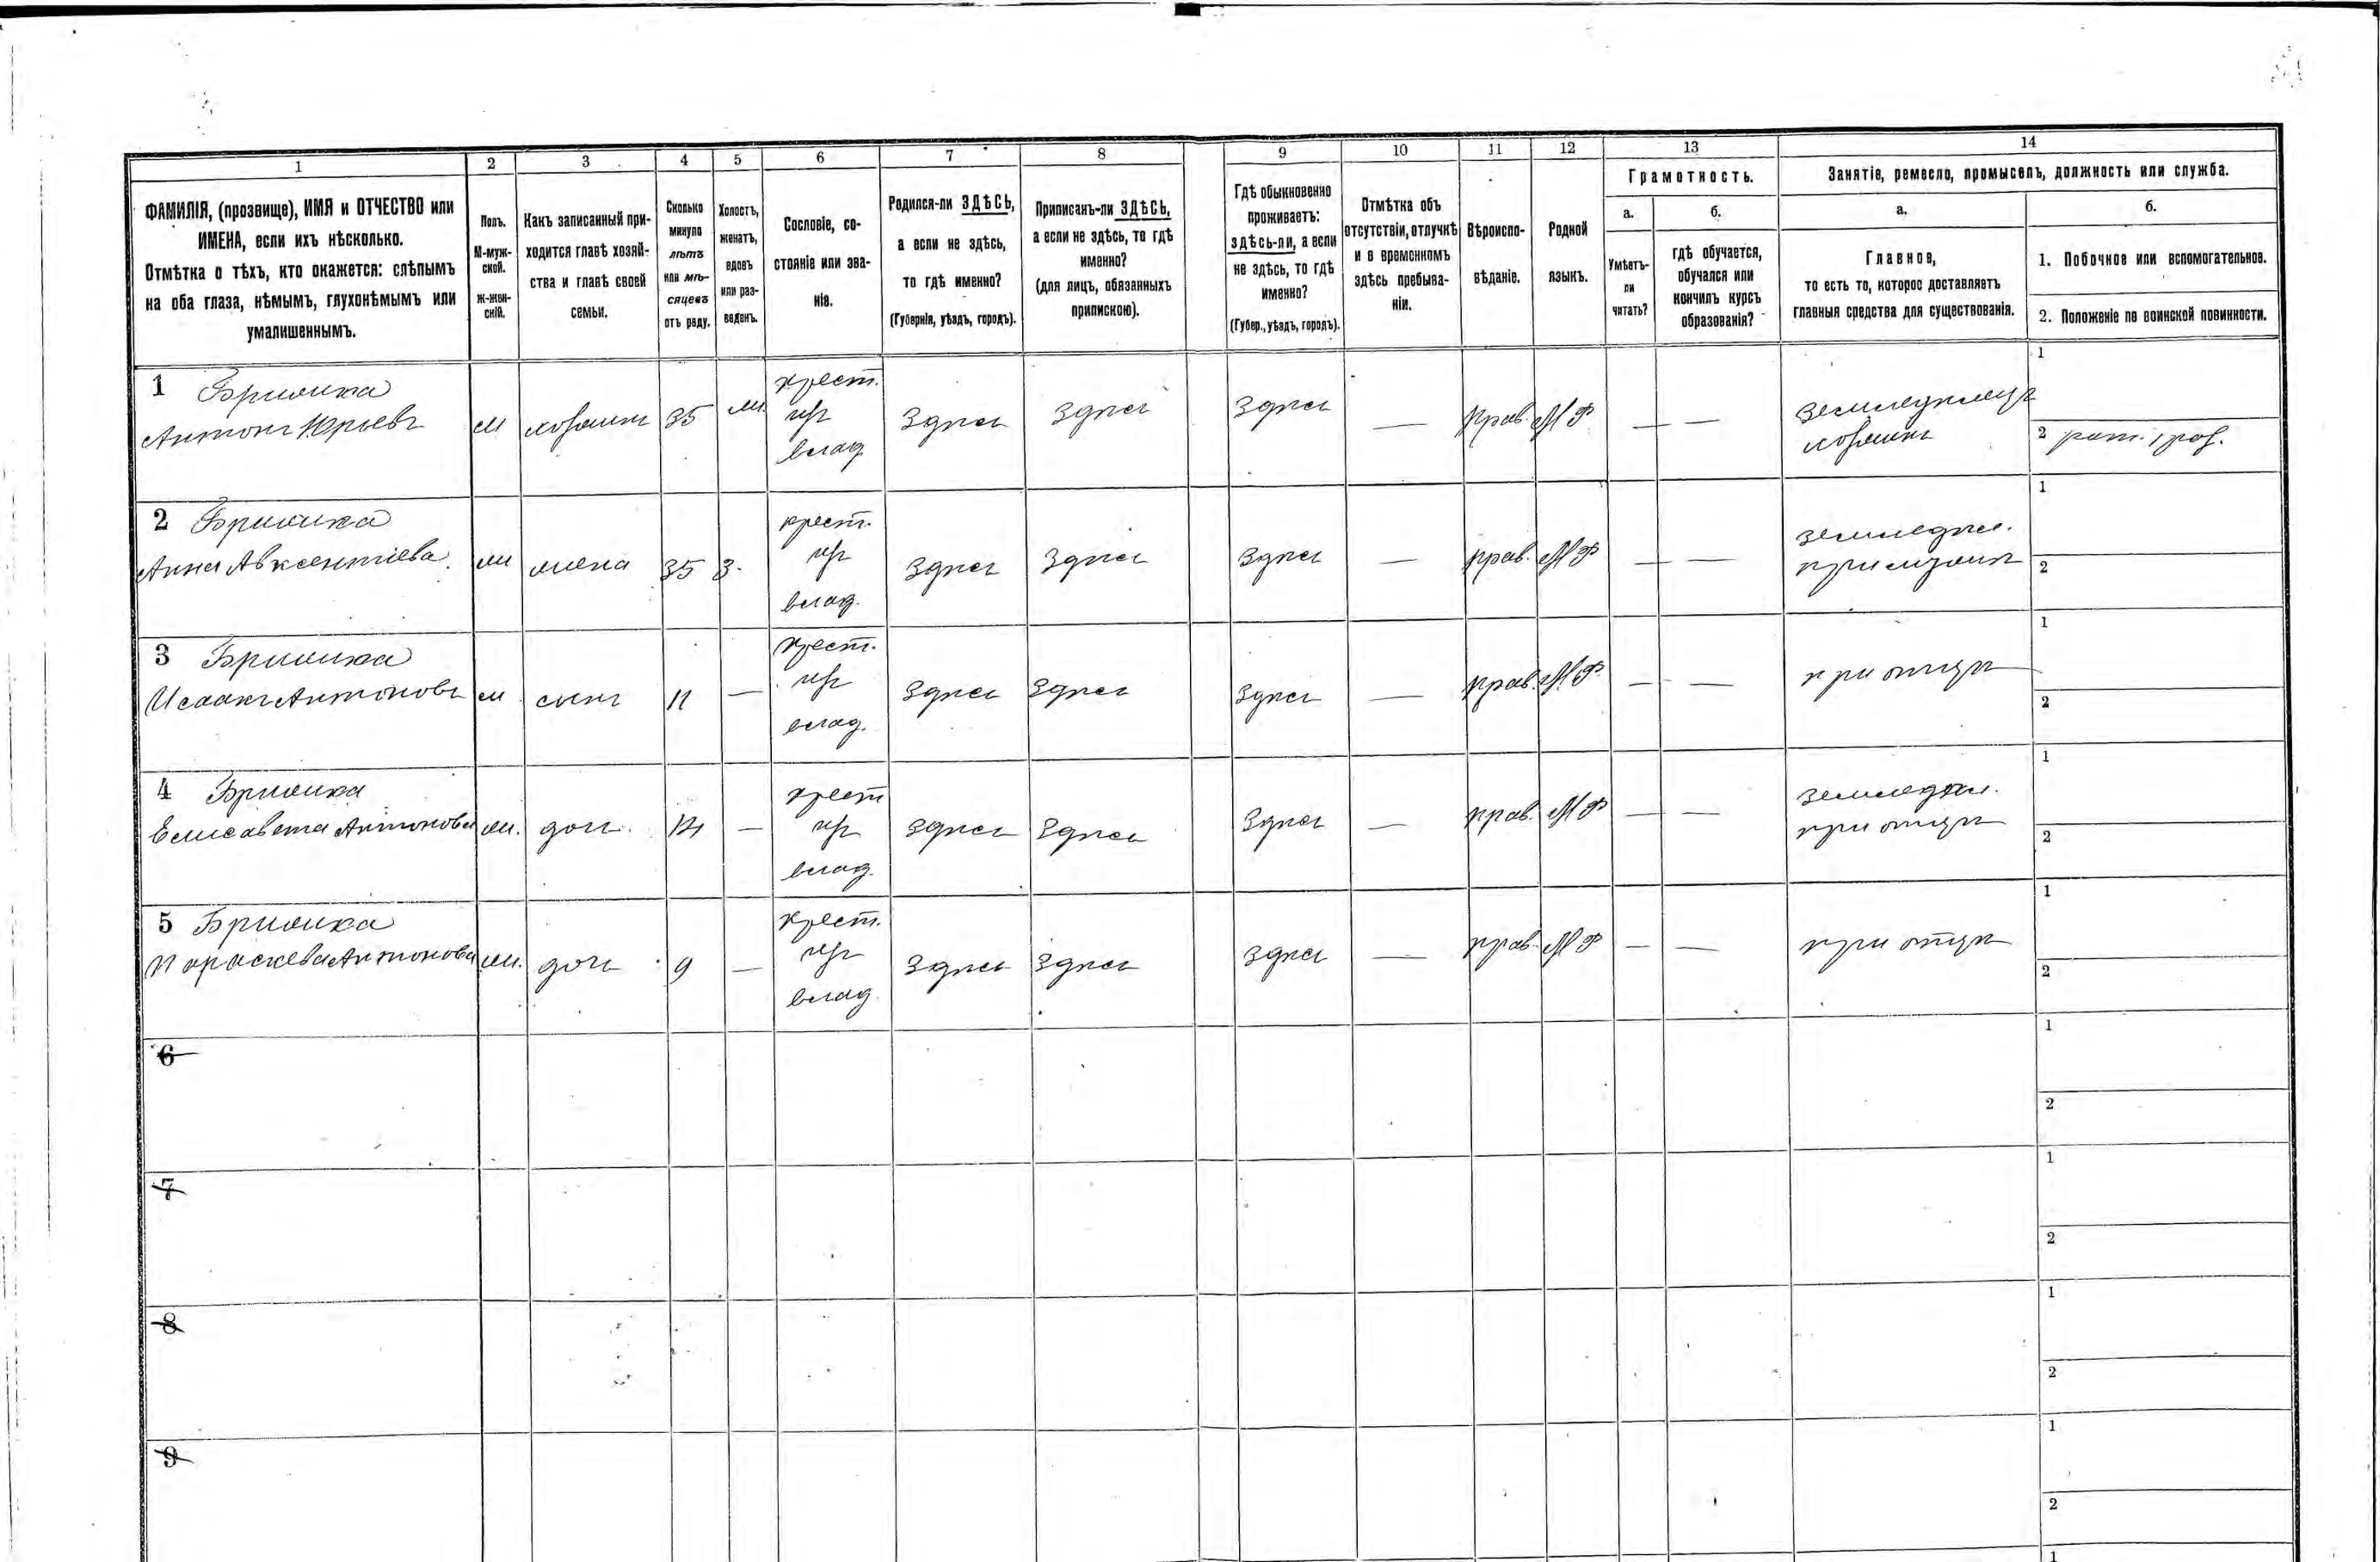 1 2 3 4 5 6 7 8 9 10 11 12 13 14
ФАМИЛІЯ, (прозвище), ИМЯ и ОТЧЕСТВО или
ИМЕНА, если ихъ нѣсколько.
Отмѣтка о тѣхъ, кто окажется: слѣпымъ
на оба глаза, нѣмымъ, глухонѣмымъ или
умалишеннымъ.
Полъ.
М-муж-
ской.
Ж-жен-
скій.
Какъ записанный при-
ходится главѣ хозяй-
ства и главѣ своей
семьи.
Сколько
минуло
лѣтъ
или мѣ-
сяцевъ
отъ роду.
Холостъ,
женатъ,
вдовъ
или раз-
веденъ.
Сословіе, со-
стояніе или зва-
ніе.
Родился-ли ЗДѢСЬ,
а если не здѣсь,
то гдѣ именно?
(Губернія, уѣздъ, городъ).
Приписанъ-ли ЗДѢСЬ,
а если не здѣсь, то гдѣ
именно?
(для лицъ, обязанныхъ
припискою).
Гдѣ обыкновенно
проживаетъ:
здѣсь-ли, а если
не здѣсь, то гдѣ
именно?
(Губер., уѣздъ, городъ).
Отмѣтка объ
отсутствіи, отлучкѣ
и о временномъ
здѣсь пребыва-
ніи.
Вѣроиспо-
вѣданіе.
Родной
языкъ.
Грамотность.
а.
Умѣетъ-
ли
читать?
б.
гдѣ обучается,
обучался или
кончилъ курсъ
образованія?
Занятіе, ремесло, промыселъ, должность или служба.
а.
Главное,
то есть то, которое доставляетъ
главныя средства для существованія.
б.
1. Побочное или вспомогательное.
2. Положеніе по воинской повинности.
1
Антонъ Юрьевъ
м хозяинъ 35 ж.
крест.
изъ
влад.
Здѣсь Здѣсь Здѣсь — прав. — —
земледѣлецъ
хозяинъ
1
2
2
Анна Авксентіева.
ж жена 35 з.
крест.
изъ
влад.
Здѣсь Здѣсь Здѣсь — прав. — —
земледѣл.
при мужѣ
1
2
3
Исаакъ Антоновъ
м сынъ 11 —
крест.
изъ
влад.
Здѣсь Здѣсь Здѣсь — прав. — —
при отцѣ
1
2
4
Елисавета Антонова
ж. дочь —
крест
изъ
влад.
Здѣсь Здѣсь Здѣсь — прав. — —
земледѣл.
при отцѣ
1
2
5
Параскева Антонова
ж. дочь 9 —
крест.
изъ
влад
Здѣсь Здѣсь Здѣсь — прав. — —
при отцѣ
1
2
6
1
2
7
1
2
8
1
2
9
1
2
1